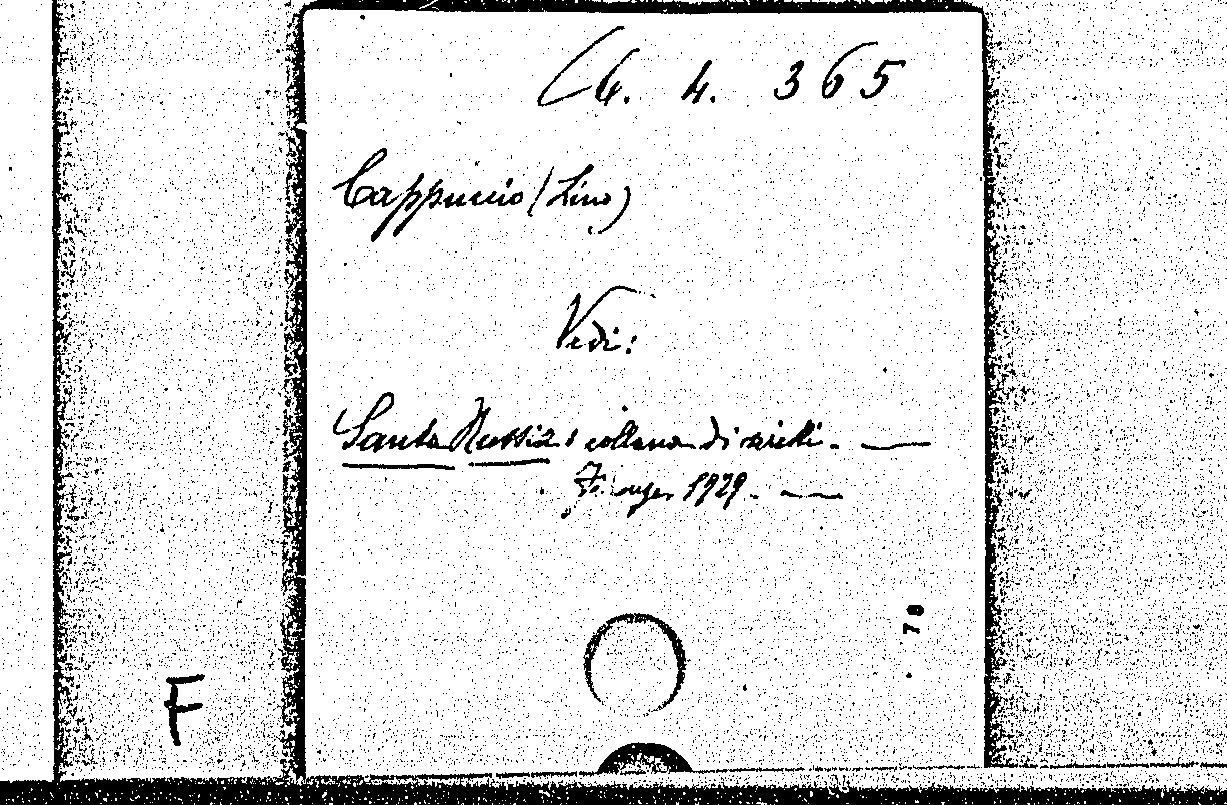 C6. 4. 365
Cappuccio (Lino)
Vedi:
Santa Russia: collana di scritti.
Firenze 1929.
78
F